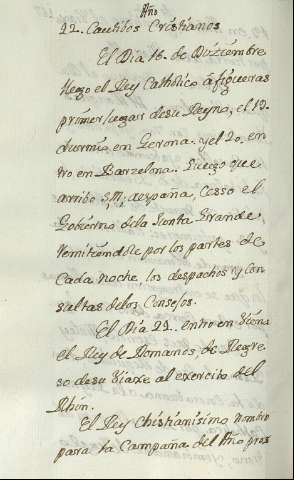 Año
22.. Cautibos Cristianos.
El Dia 16. de Diziembre
llego el Rey Catholico á figueras
primer lugar de su Reyno, el 19.
durmio en Gerona. y el 20. en
tro en Barcelona. Luego que
arribo S,M, a españa, Cesso el
Gobierno dela Junta Grande,
remitiendole por los partes de
Cada noche los despachos y Con
sultas delos Consejos.
El Dia 22. entro en
el Rey de Romanos de Regre
so de su Viaxe al exercito del
Rhin.
El Rey Christianisimo nombro
para la Campaña del Año prox